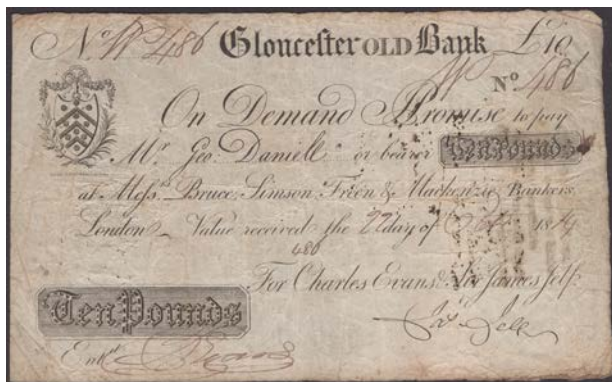 No. W486 Gloucester OLD Bank £10
W No. 486
On Demand Promise to pay
Mr. Geo: Daniell or bearer Ten Pounds
at Messrs. Bruce, Simson, Freer & Mackenzie Bankers
London Value received the 22 day of 18
486
For Charles Evans & Sir James Jelf.
Jas. Jelf
Ten Pounds
Entd. Evans